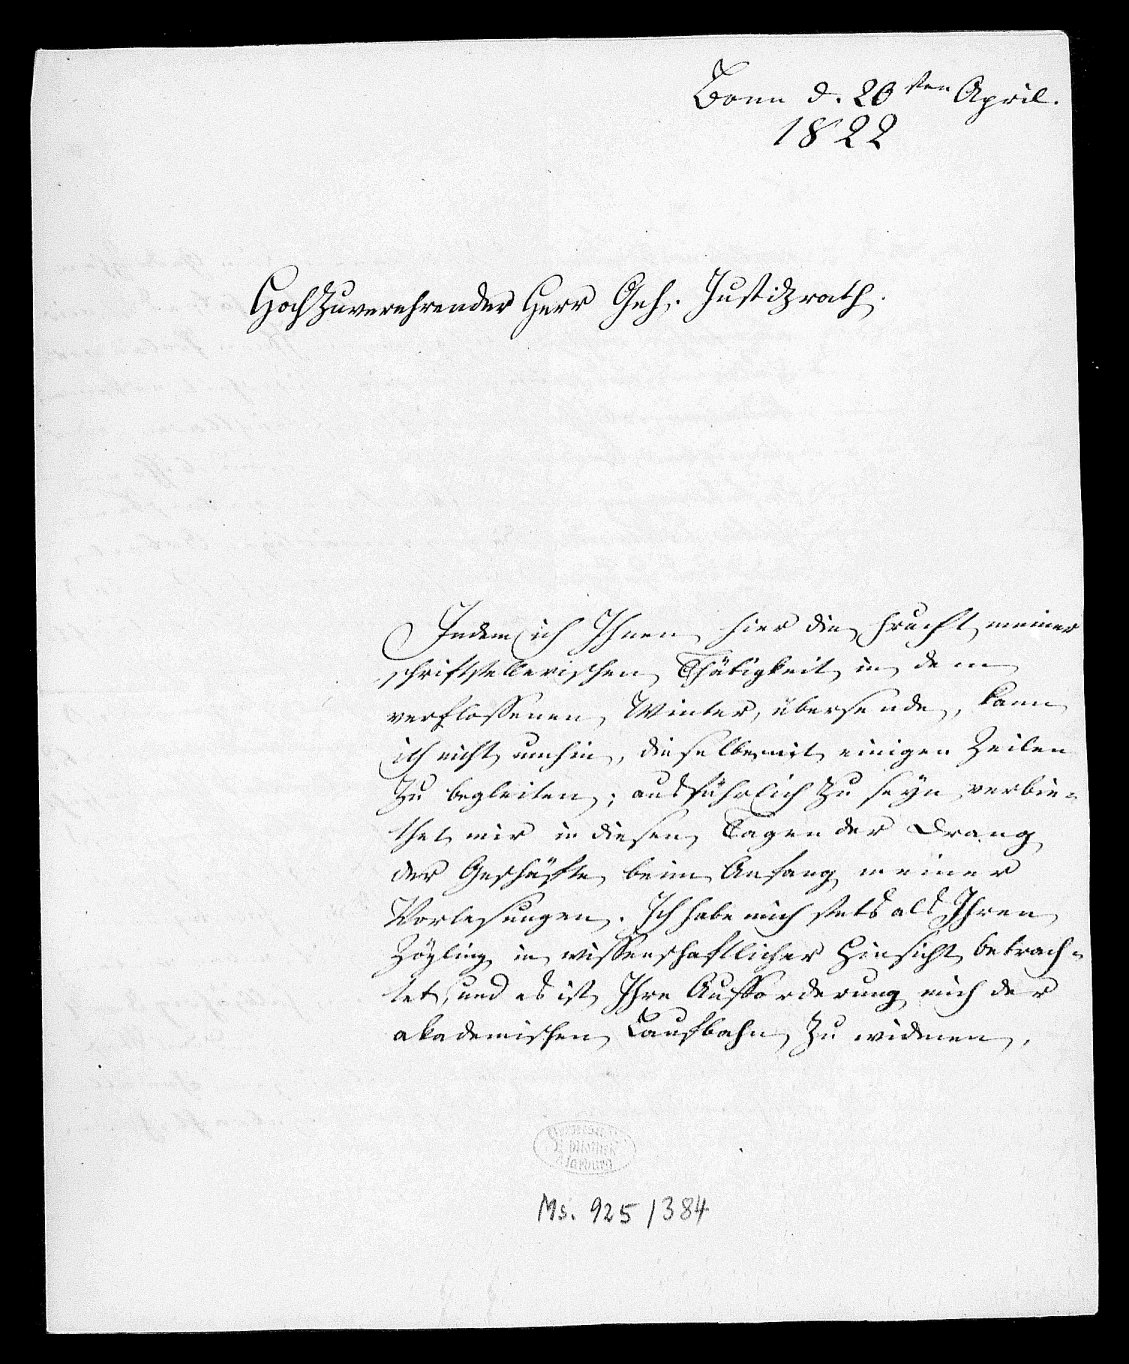 Bonn d. 20sten April.
1822
Hochzuverehrender Herr Geh. Justizrath.
Indem ich Ihnen hier die Frucht meiner
schriftstellerischen Thätigkeit in dem
verflossenen Winter übersende, kann
ich nicht umhin, dieselbe mit einigen Zeilen
zu begleiten; ausführlich zu seyn verbie-
thet mir in diesen Tagen der Drang
der Geschäfte beim Anfang meiner
Vorlesungen. Ich habe mich stets als Ihren
Zögling in wissenschaftlicher Hinsicht betrach-
tet, und es ist Ihre Aufforderung mich der
akademischen Laufbahn zu widmen,
Bibliothek
Marburg
Ms. 925/384